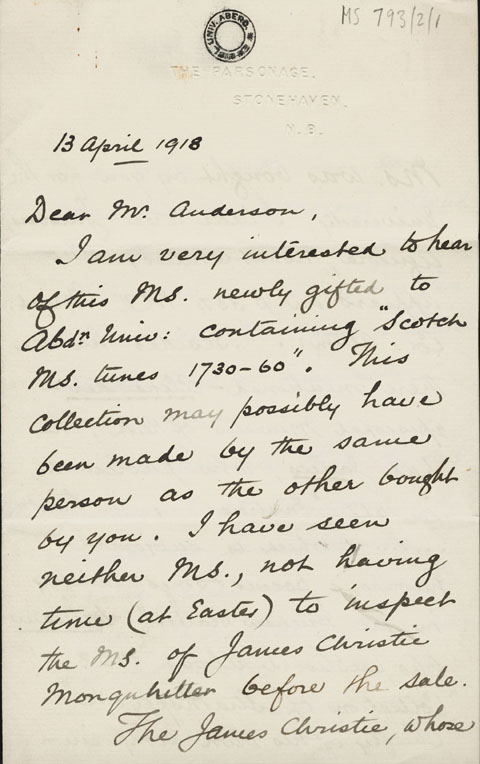 MS 793/2/1
UNIV. ABERD.
THE PARSONAGE,
STONEHAVEN,
N.B.
13 April 1918
Dear Mr. Anderson,
I am very interested to hear
of this MS. newly gifted to
Abdn Univ: containing "Scotch
MS. tunes 1730-60". This
collection may possibly have
been made by the same
person as the other bought
by you. I have seen
neither MS., not having
time (at Easter) to inspect
the MS. of James Christie
Monquhitter before the sale.
The James Christie, whose